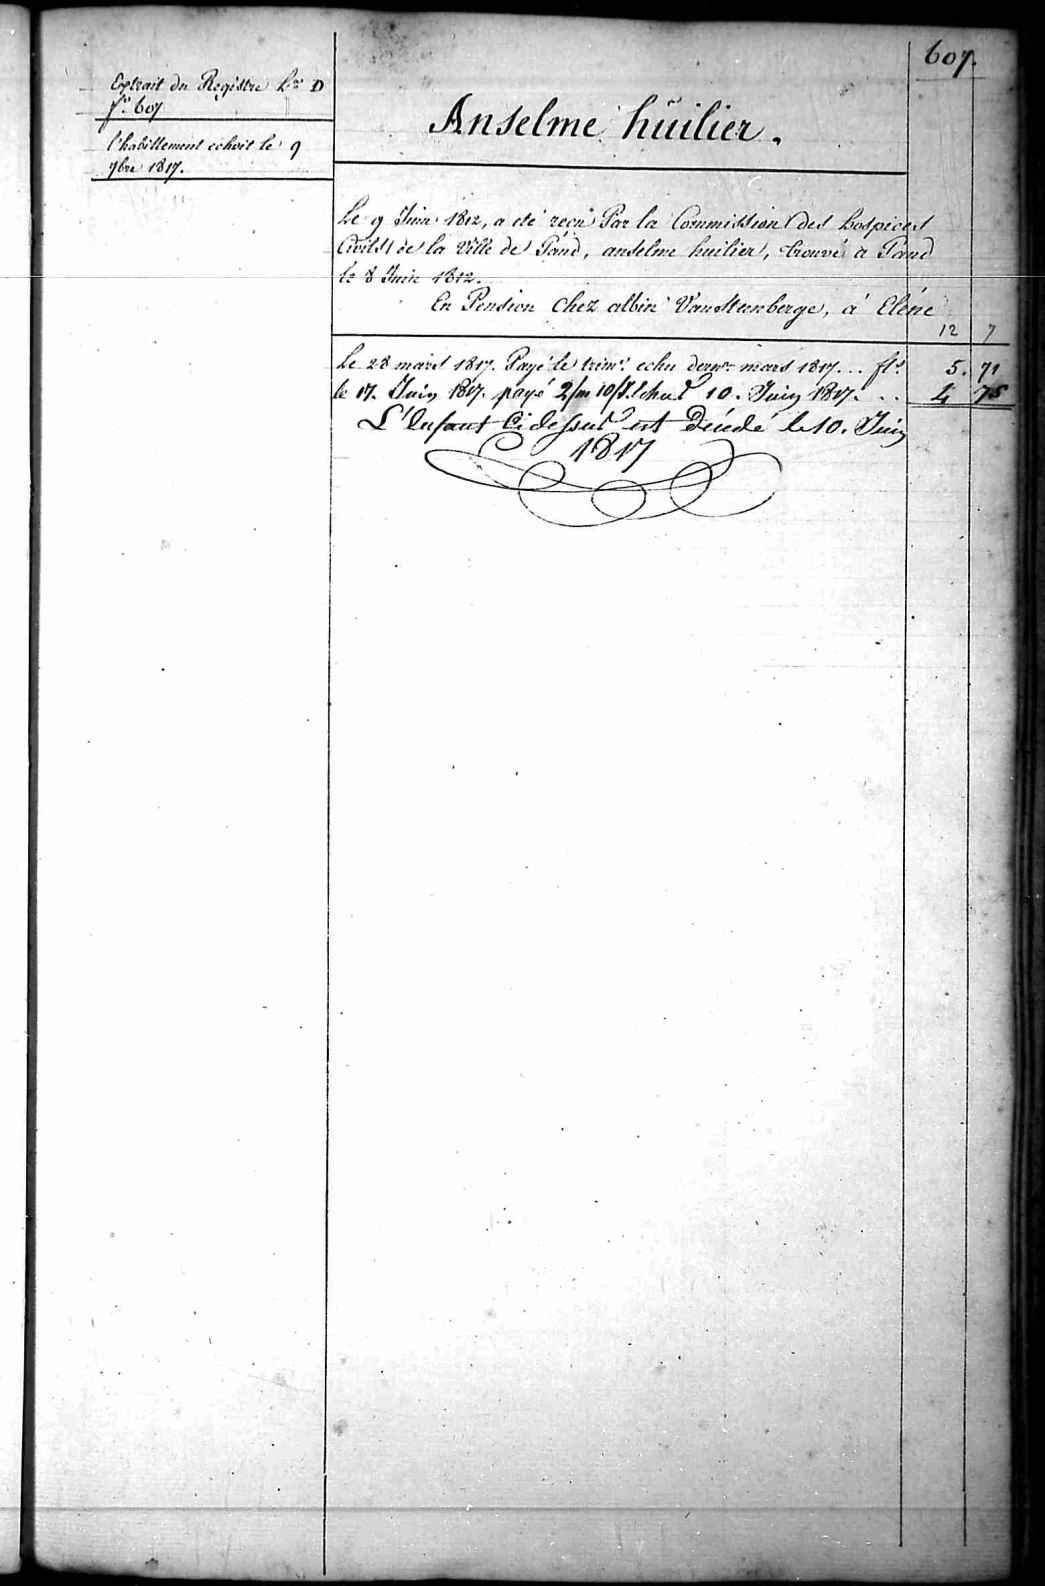 607.
Extrait du Registre Lra D
fo. 607
l'habillement echoit le 9
9bre 1817.
Anselme huilier.
Le 9 Juin 1812, a eté reçu Par la Commission des hospices
Civils de la Ville de Gand, anselme huilier, trouvé a Gand
le 8 Juin 1812.
En Pension Chez albin Vansteenberge, á Eléne
12 7
Le 28 mars 1817. Payé le trimre. echu dernr. mars 1817... fls 5. 71
le 17. Juin 1817. payé 2/m 10/J. Echus 10. Juin 1817. . . 4 75
L'Enfant Cidessus est Décédé le 10. Juin
1817